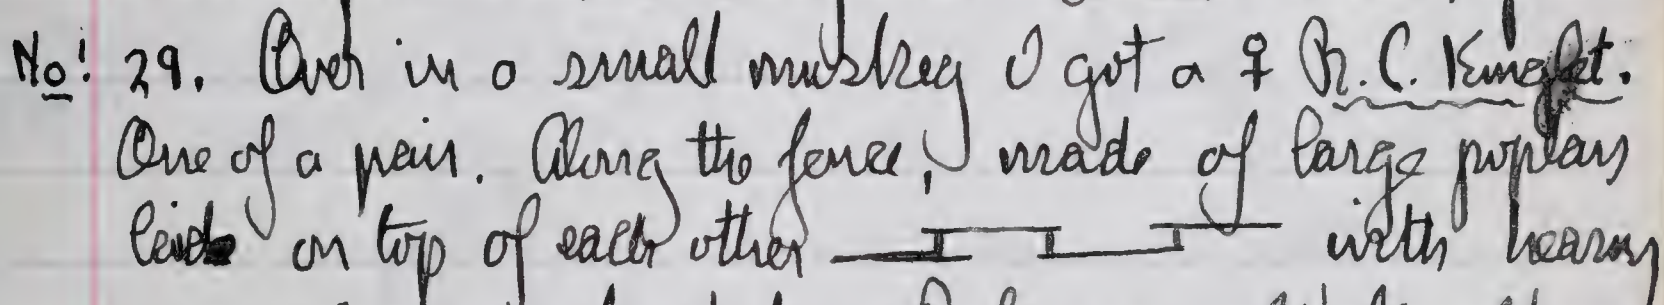 No! 29. Over in a small muskeg I got a ♀ R.C. Kinglet.
One of a pair. Along the fence, made of large poplars
laid on top of each other with heavy